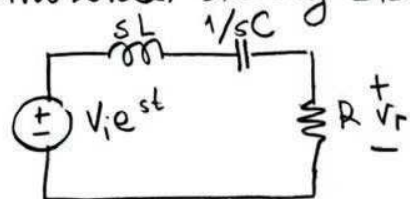 sL 1/sC
+ Vᵢeˢᵗ R + vᵣ
− −